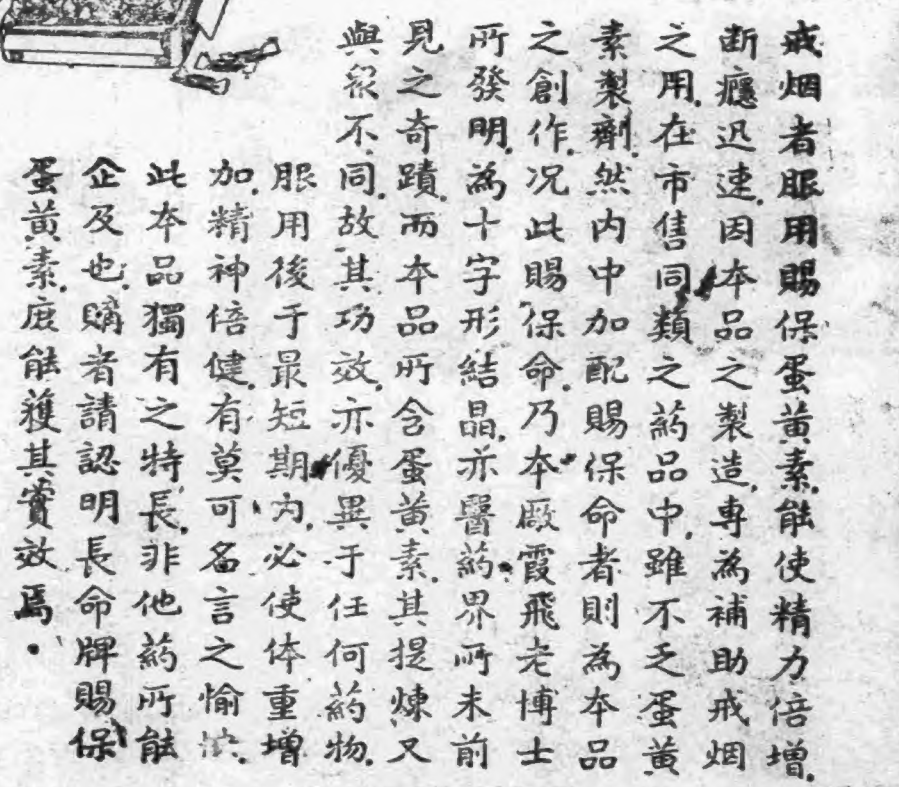 戒烟者服用賜保蛋黃素能使精力倍增.
斷癮迅速.因本品之製造.專為補助戒烟
之用.在市售同類之葯品中.雖不乏蛋黃
素製劑.然内中加配賜保命者則為本品
之創作.况此賜保命.乃本廠霞飛老博士
所發明.為十字形結晶.亦醫葯界所未前
見之奇蹟.而本品所含蛋黃素.其提煉又
與衆不同.故其功效.亦優異于任何葯物.
服用後于最短期内.必使体重增
加.精神倍健.有莫可名言之愉快.
此本品獨有之特長.非他葯所能
企及也.購者請認明長命牌賜保
蛋黃素.庶能獲其實效焉.